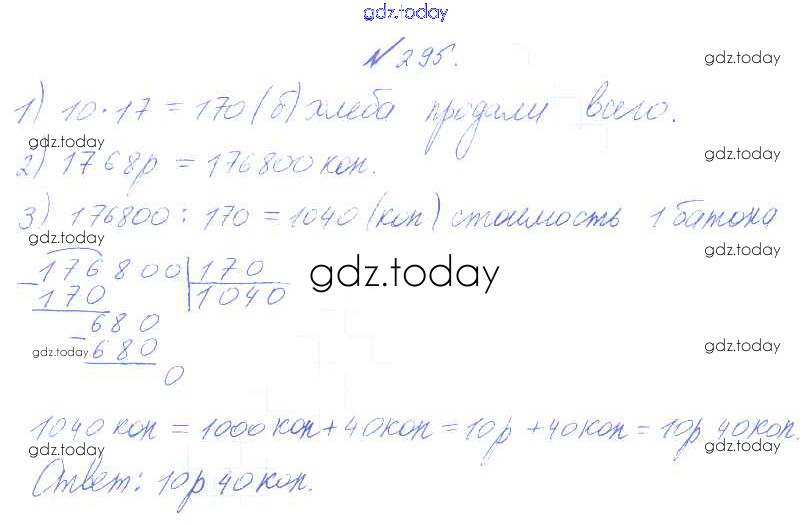 gdz.today
№ 295.
gdz.today
1) 10 · 17 = 170 (б) хлеба продали всего.
gdz.today
2) 1768р = 176800 коп.
gdz.today
3) 176800 : 170 = 1040 (коп) стоимость 1 батона
gdz.today gdz.today
176800 | 170
- 170 | 1040
gdz.today
680
- 680
gdz.today gdz.today
0
1040 коп = 1000 коп + 40 коп = 10р + 40 коп = 10р 40 коп.
gdz.today gdz.today
Ответ: 10р 40 коп.